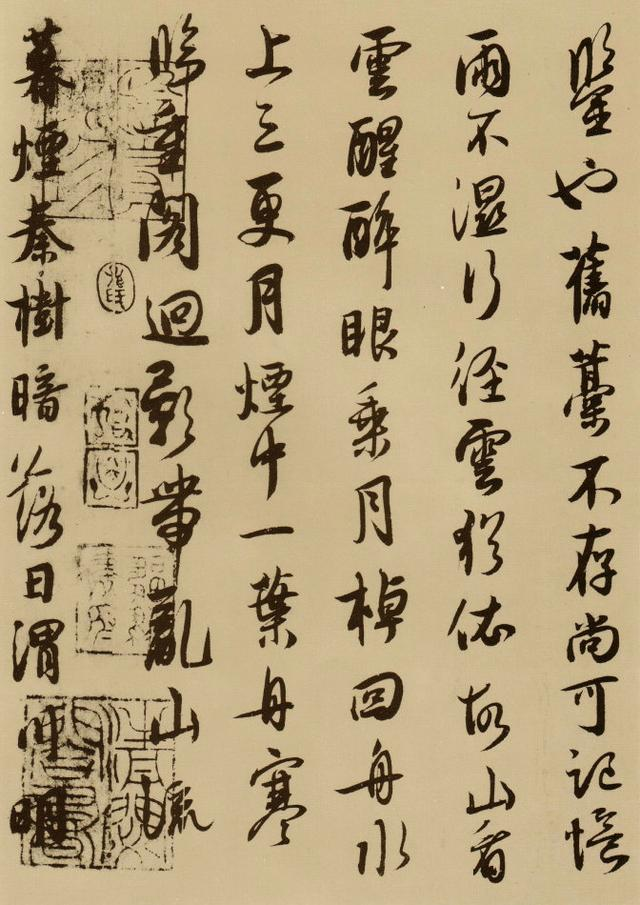 鑒也舊藁不存尚可記憶
雨不濕行徑雲猶依故山看
雲醒醉眼乘月棹回舟水
上三更月煙中一葉舟寒
歸重閣迥影帶亂山橫
暮煙秦樹暗落日渭川明